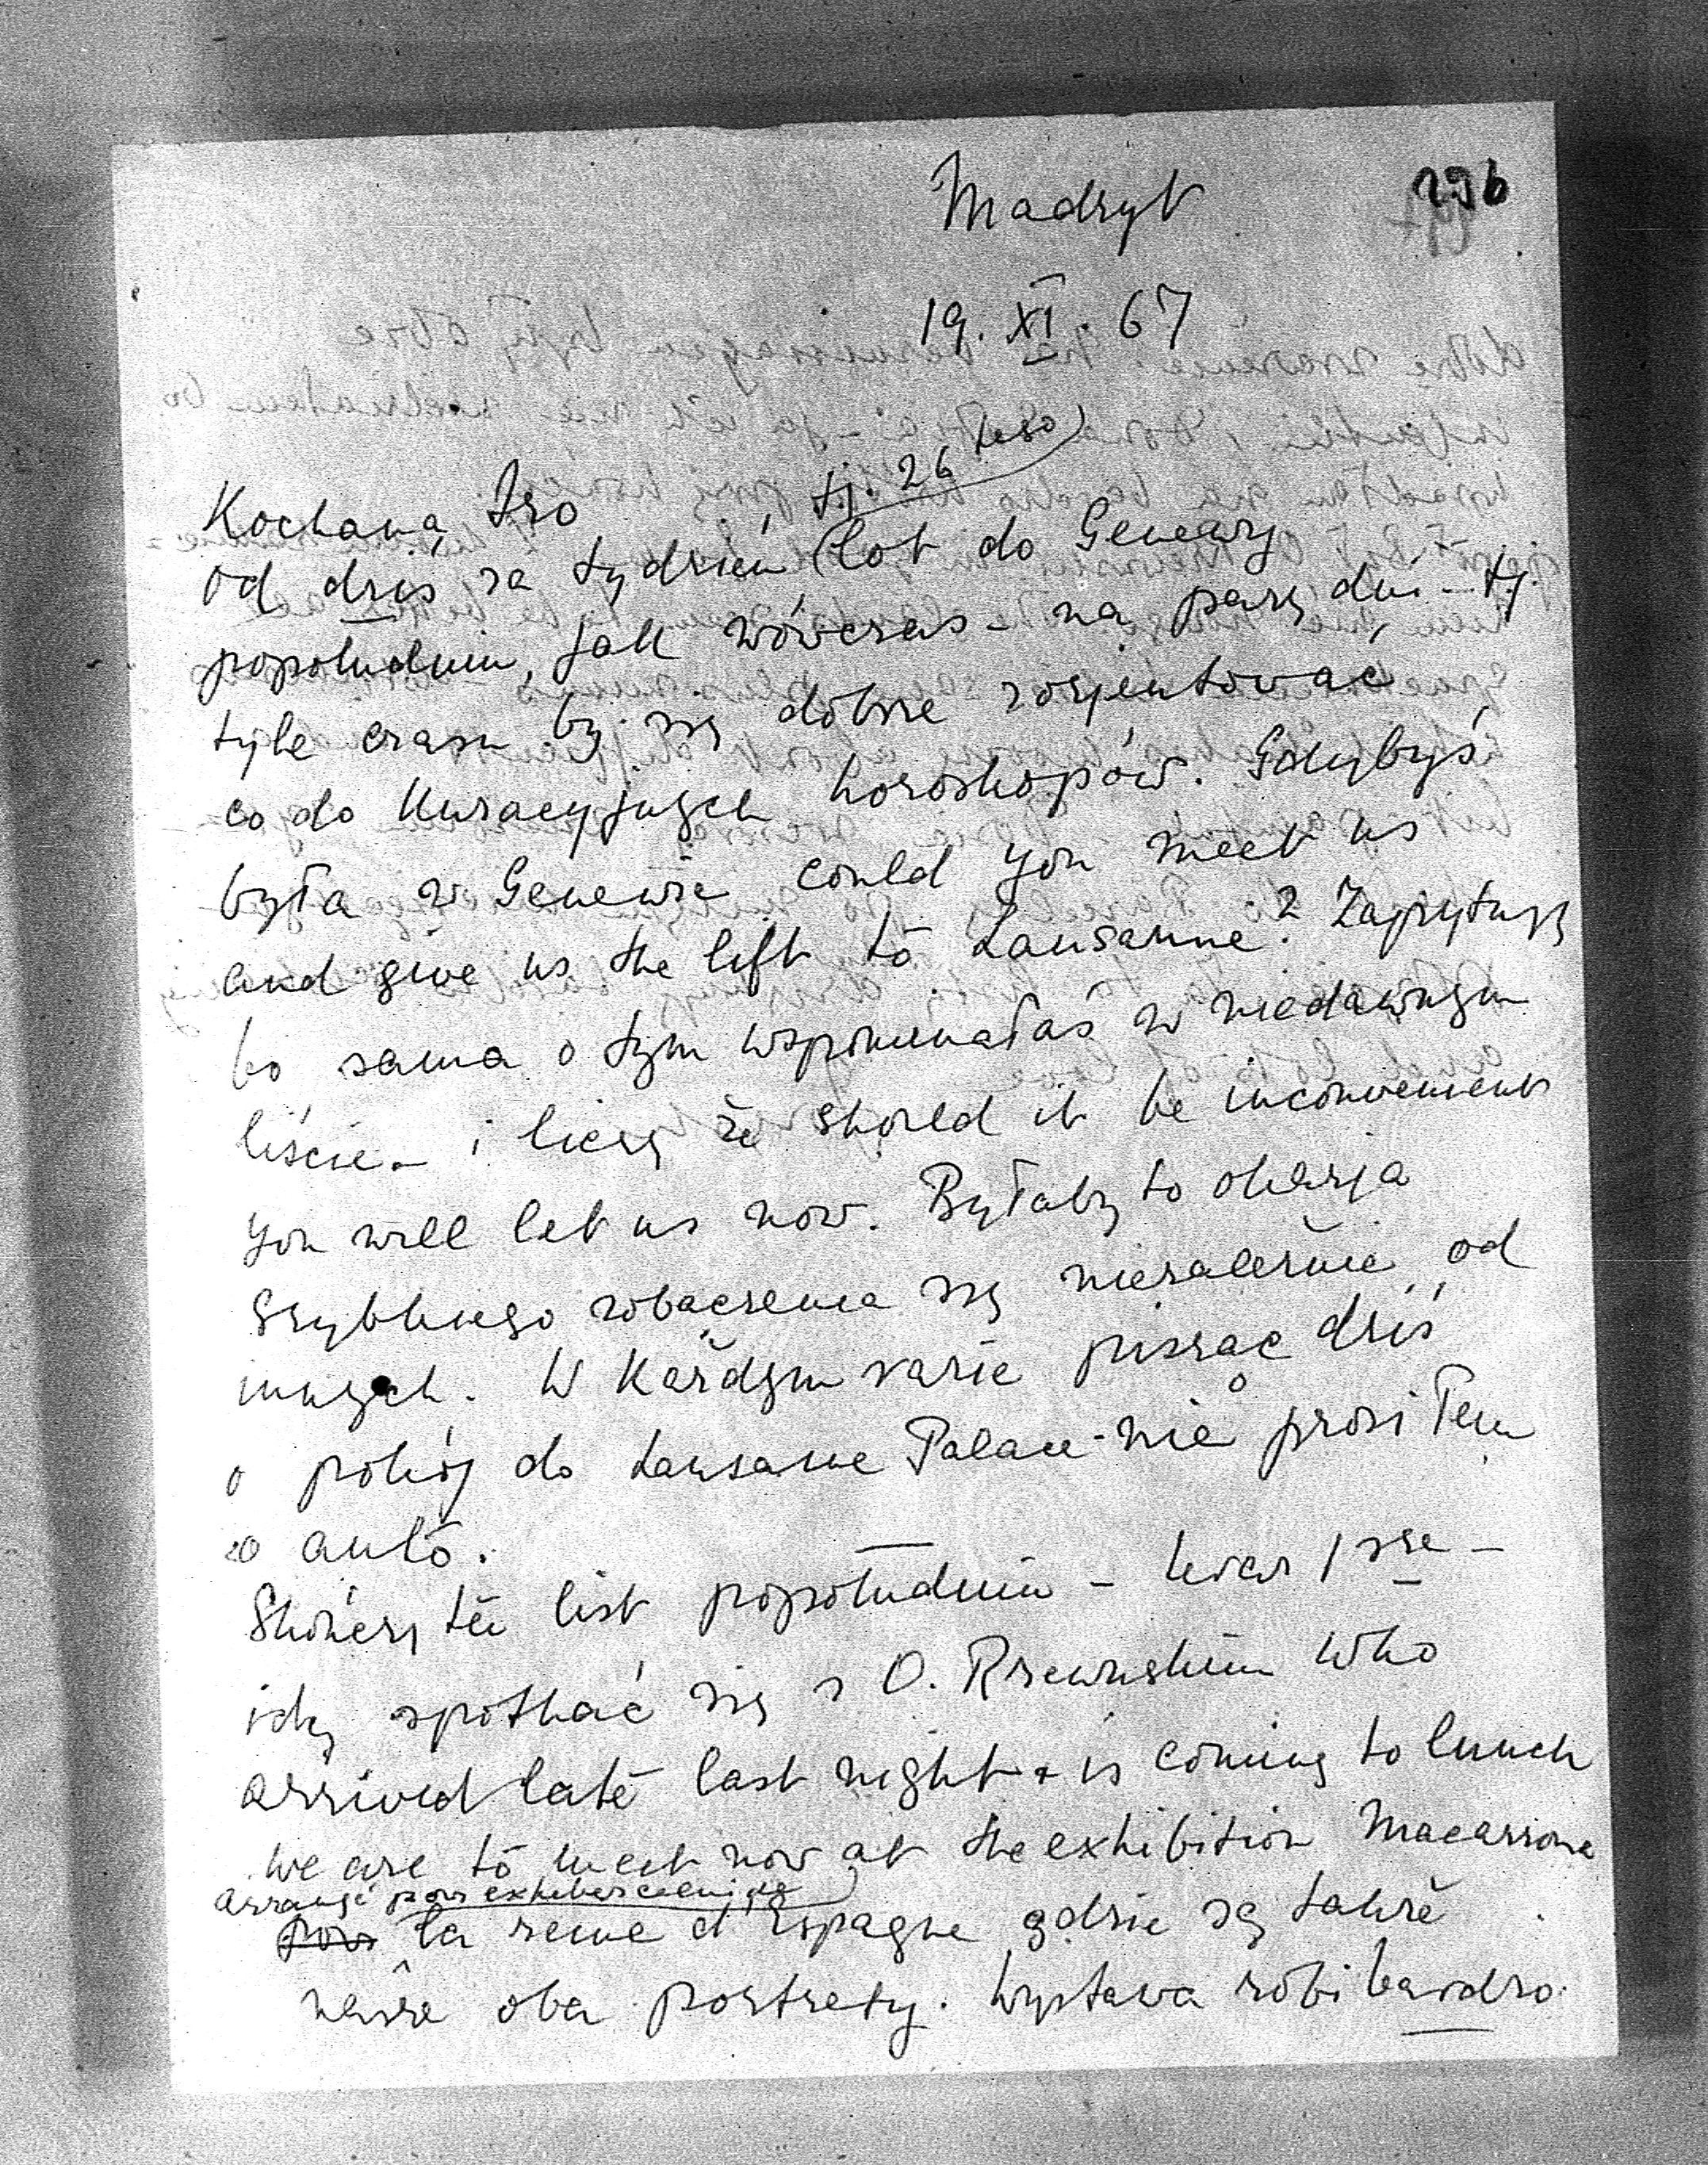 Madryt
296
19. XI. 67
Kochana Iro
tj. 26 tego)
Od dziś za tydzień (lot do Genewy
popołudniu, jak wówczas - na parę dni - tj.
tyle czasu by się dobrze zorjentować
co do kuracyjnych horoskopów. Gdybyś
była w Genewie could you meet us
and give us the lift to Lausanne? Zapytuję
bo sama o tym wspominałaś w niedawnym
liście - i liczę że should it be inconvenient
you will let us now. Byłaby to okazja
szybkiego zobaczenia się niezależnie od
innych. W każdym razie pisząc dziś
o pokój do Lausanne Palace - nie prosiłem
o auto.
Skończę ten list popołudniu - teraz
idę spotkać się z O. Rzewuskim who
arrived late last night & is coming to lunch
we are to meet now at the exhibition Macarrone
arrangé pour
pour la reine d'Espagne gdzie są także
nasze oba portrety. Wystawa robi bardzo